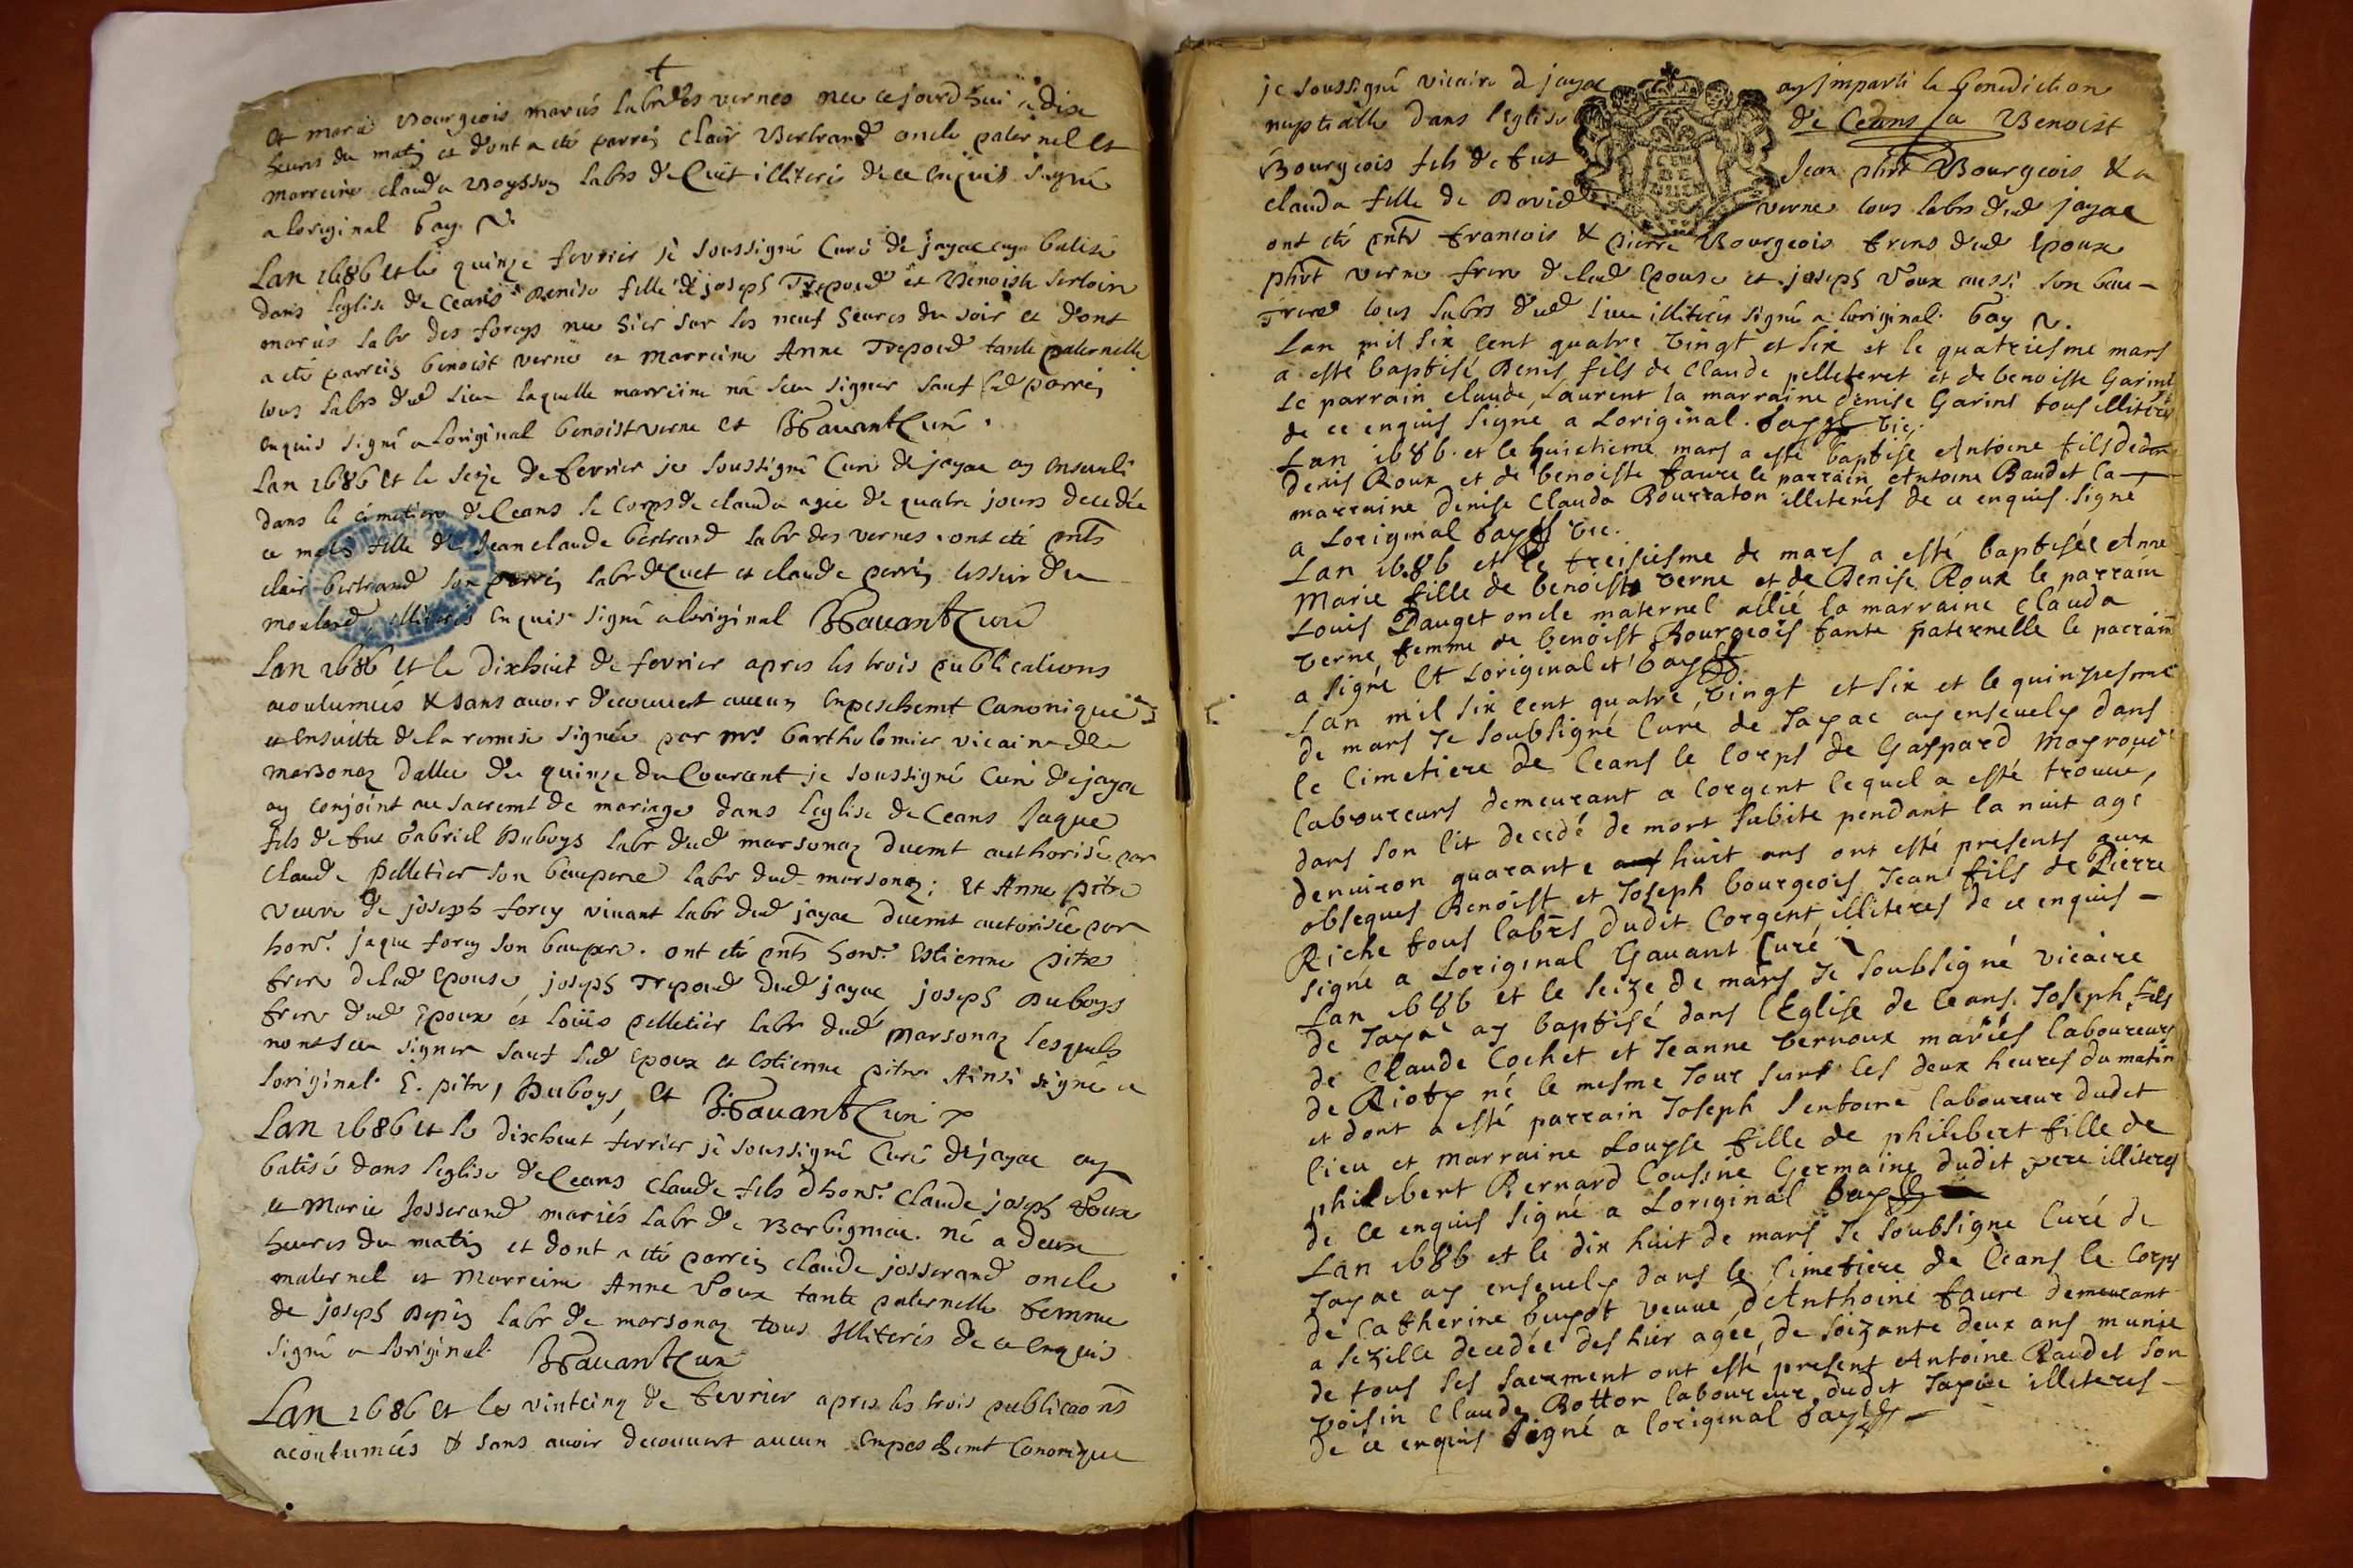 et marie Bourgeois mariés labrs des vernes née ce jourd'hui a dix
heures du matin et dont a été parrein Clair Bertrand oncle paternel et
marreine clauda Voysson labrs de Cuet illiterés de ce enquis signé
a loriginal bay.
Lan 1686 et le quinze fevrier je soussigné Curé de jayac ay batisé
dans leglise de Ceans Denise fille de joseph Trepoud et Benoiste Sertoin
mariés labr des foreys née hier sur les neuf heures du soir et dont
a été parrein benoist verne et marreine Anne Trepoud tante paternelle
tous labrs dud lieu laquelle marreine na seu signer sauf led parrein
enquis signé a loriginal benoist verne et Gavant Curé.
Lan 1686 et le seize de fevrier je soussigné Curé de jayac ay enseveli
dans le cimetiere de Ceans le corps de clauda agée de quatre jours decedée
ce matin fille de Jean claude bertrand labr des vernes. ont été pnts
clair bertrand son parrein labr de Cuet et claude perrin tessier du
moulard, illiterés enquis signé a loriginal Gavant Curé
Lan 1686 et le dixhuit de fevrier apres les trois publications
acoutumées & sans avoir decouvert aucun enpeschemt Canonique
et ensuitte de la remise signée par mr. bartholomier vicaire de
marsonaz datteé du quinze du Courant je soussigné Curé de jayac
ay conjoint au sacremt de mariage dans leglise de Ceans Jaque
fils de fut Gabriel Duboys labr dud marsonaz duemt authorisé par
Claude Pelletier son beaupere labr dud marsonaz; Et Anne pitre
veuve de joseph forey vivant labr dud jayac duemt autorisée par
honr. jaque forey son beaupere. ont été pnts honr. Estienne pitre
frere delad Epouse, joseph Trepoud dud jayac, joseph Duboys
frere dud Epoux et loüis pelletier labr dud marsonaz lesquels
nont seu signer sauf led Epoux et Estienne pitre Ainsi signé a
loriginal. E. pitre, Duboys, et Gavant Curé
Lan 1686 et le dixhuit fevrier je soussigné Curé de jayac ay
batisé dans leglise de Ceans Claude fils dhonr. Claude joseph Voux
et Marie Josserand mariés labr de Barbigniac. né a deux
heures du matin et dont a été parrein claude josserand oncle
maternel et Marreine Anne Voux tante paternelle femme
de joseph Depin labr de marsonaz tous illiterés de ce enquis
signé a loriginal. Gavant Curé
Lan 1686 et le vintcinq de fevrier apres les trois publicaons
acoutumées & sans avoir decouvert aucun enpeschemt Canonique
je soussigné vicaire d jayac ay imparti la benediction
nuptialle dans leglise de Ceans a Benoist
Bourgeois fils de fut Jean phrt Bourgeois & a
clauda fille de David verne tous labrs dud jayac
ont été pnts francois & pierre Bourgeois freres dud Epoux
phrt verne frere delad Epouse et joseph Voux aussi son beau-
frere tous labrs dud lieu illiterés signé a loriginal. bay
Lan mil six cent quatre vingt et six et le quatriesme mars
a esté baptisé Denis fils de Claude pelleteret et de benoiste Garint
le parrain claude Laurent la marraine denise Garint tous illiterés
de ce enquis signé a Loriginal. bay vic.
Lan 1686. et le huictieme mars a esté baptisé Antoine fils de
denis Roux et de benoiste faure le parrain Antoine Baudet la
marraine denise Clauda Bourraton illeterés de ce enquis. signé
a Loriginal bay vic.
Lan 1686 et le treisiesme de mars a esté baptisée Anne
Marie fille de benoist verne et de Denise Roux le parrain
Louis Dauget oncle maternel allié la marraine Clauda
verne, femme de benoist Bourgeois tante paternelle le parrain
a signé et Loriginal et bay
Lan mil six cent quatre vingt et six et le quinziesme
de mars Je soubsigné Cure de Jayac ay ensevely dans
le Cimetiere de Ceans le Corps de Gaspard Moyroud
laboureurs demeurant a Corgent lequel a esté trouvé,
dans son lit decedé de mort subite pendant la nuit agé
denviron quarante huit ans ont esté presents aux
obseques Benoist et Joseph bourgeois Jean fils de Pierre
Riche tous labrs dudit Corgent illiteres de ce enquis -
signé a Loriginal Gavant Curé
Lan 1686 et le seize de mars Je soubsigné vicaire
de Jayac ay baptisé dans l'Eglise de Ceans. Joseph fils
de Claude Cochet et Jeanne vernoux mariés laboureurs
de Rioty né le mesme Jour sur les deux heures du matin
et dont a esté parrain Joseph Sentoine laboureur dudit
lieu et marraine Louyse fille de philibert fille de
philibert Bernard Cousine Germaine dudit pere illiteres
de Ce enquis signé a Loriginal bay
Lan 1686 et le dix huit de mars Je soubsigne Curé de
Jayac ay ensevely dans le Cimetiere de Ceans le Corps
de Catherine buyot veuve d'Anthoine faure demeurant
a Sezille decedée des hier agée de soizante deux ans munie
de tous les sacrment ont esté present Antoine Baudet son
voisin Claude Botton laboureur dudit Jayac illeteres -
de ce enquis signé a loriginal bay